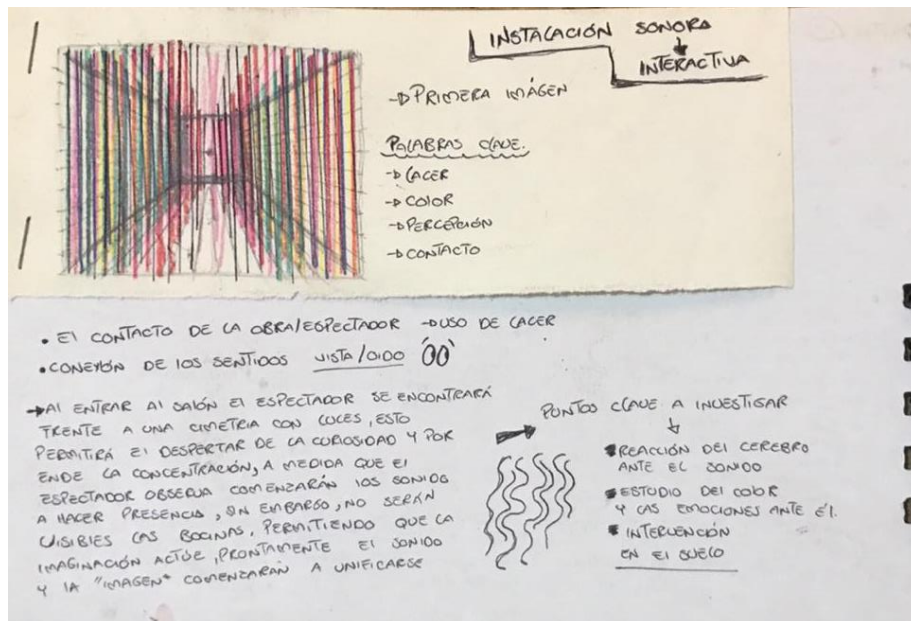 INSTALACIÓN SONORA
INTERACTIVA
PRIMERA IMÁGEN
PALABRAS CLAVE.
LACER
COLOR
PERCEPCIÓN
CONTACTO
• El CONTACTO DE LA OBRA/ESPECTADOR → USO DE LACER
• CONEXIÓN DE LOS SENTIDOS VISTA/OIDO
→ Al ENTRAR Al SALÓN El ESPECTADOR SE ENCONTRARÁ
FRENTE A UNA CIMETRIA CON LUCES, ESTO
PERMITIRÁ El DESPERTAR DE LA CURIOSIDAD Y POR
ENDE LA CONCENTRACIÓN, A MEDIDA QUE El
ESPECTADOR OBSERVA COMENZARÁN LOS SONIDO
A HACER PRESENCIA, SIN EMBARGO, NO SERÁN
VISIBLES LAS BOCINAS, PERMITIENDO QUE LA
IMAGINACIÓN ACTÚE, PRONTAMENTE El SONIDO
Y LA "IMAGEN" COMENZARÁN A UNIFICARSE
PUNTOS CLAVE A INVESTIGAR
REACCIÓN DEL CEREBRO
ANTE EL SONIDO
ESTUDIO DEL COLOR
Y LAS EMOCIONES ANTE ÉL.
INTERVENCIÓN
EN El SUELO